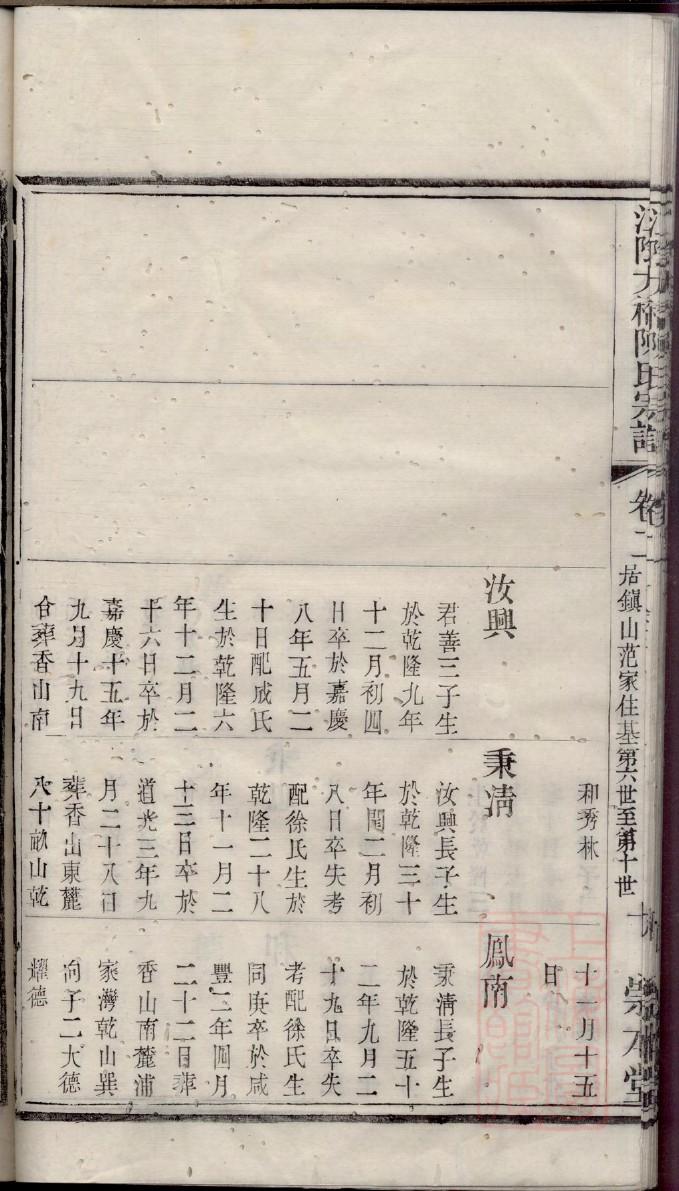 江陰九橋陳氏宗譜
卷二
居鎮山范家住基第六世至第十世
崇本堂
汝興
君善三子生
於乾隆九年
十二月初四
日卒於嘉慶
八年五月二
十日配成氏
生於乾隆六
年十二月二
十六日卒於
嘉慶十五年
九月十九日
合葬香山南
和秀林
秉清
汝興長子生
於乾隆三十
年閏二月初
八日卒失考
配徐氏生於
乾隆二十八
年十一月二
十三日卒於
道光三年九
月二十八日
葬香山東麓
八十畝山乾
十一月十五
日
鳳南
秉清長子生
於乾隆五十
二年九月二
十九日卒失
考配徐氏生
同庚卒於咸
豐二年四月
二十二日葬
香山南麓浦
家灣乾山巽
向子二大德
耀德